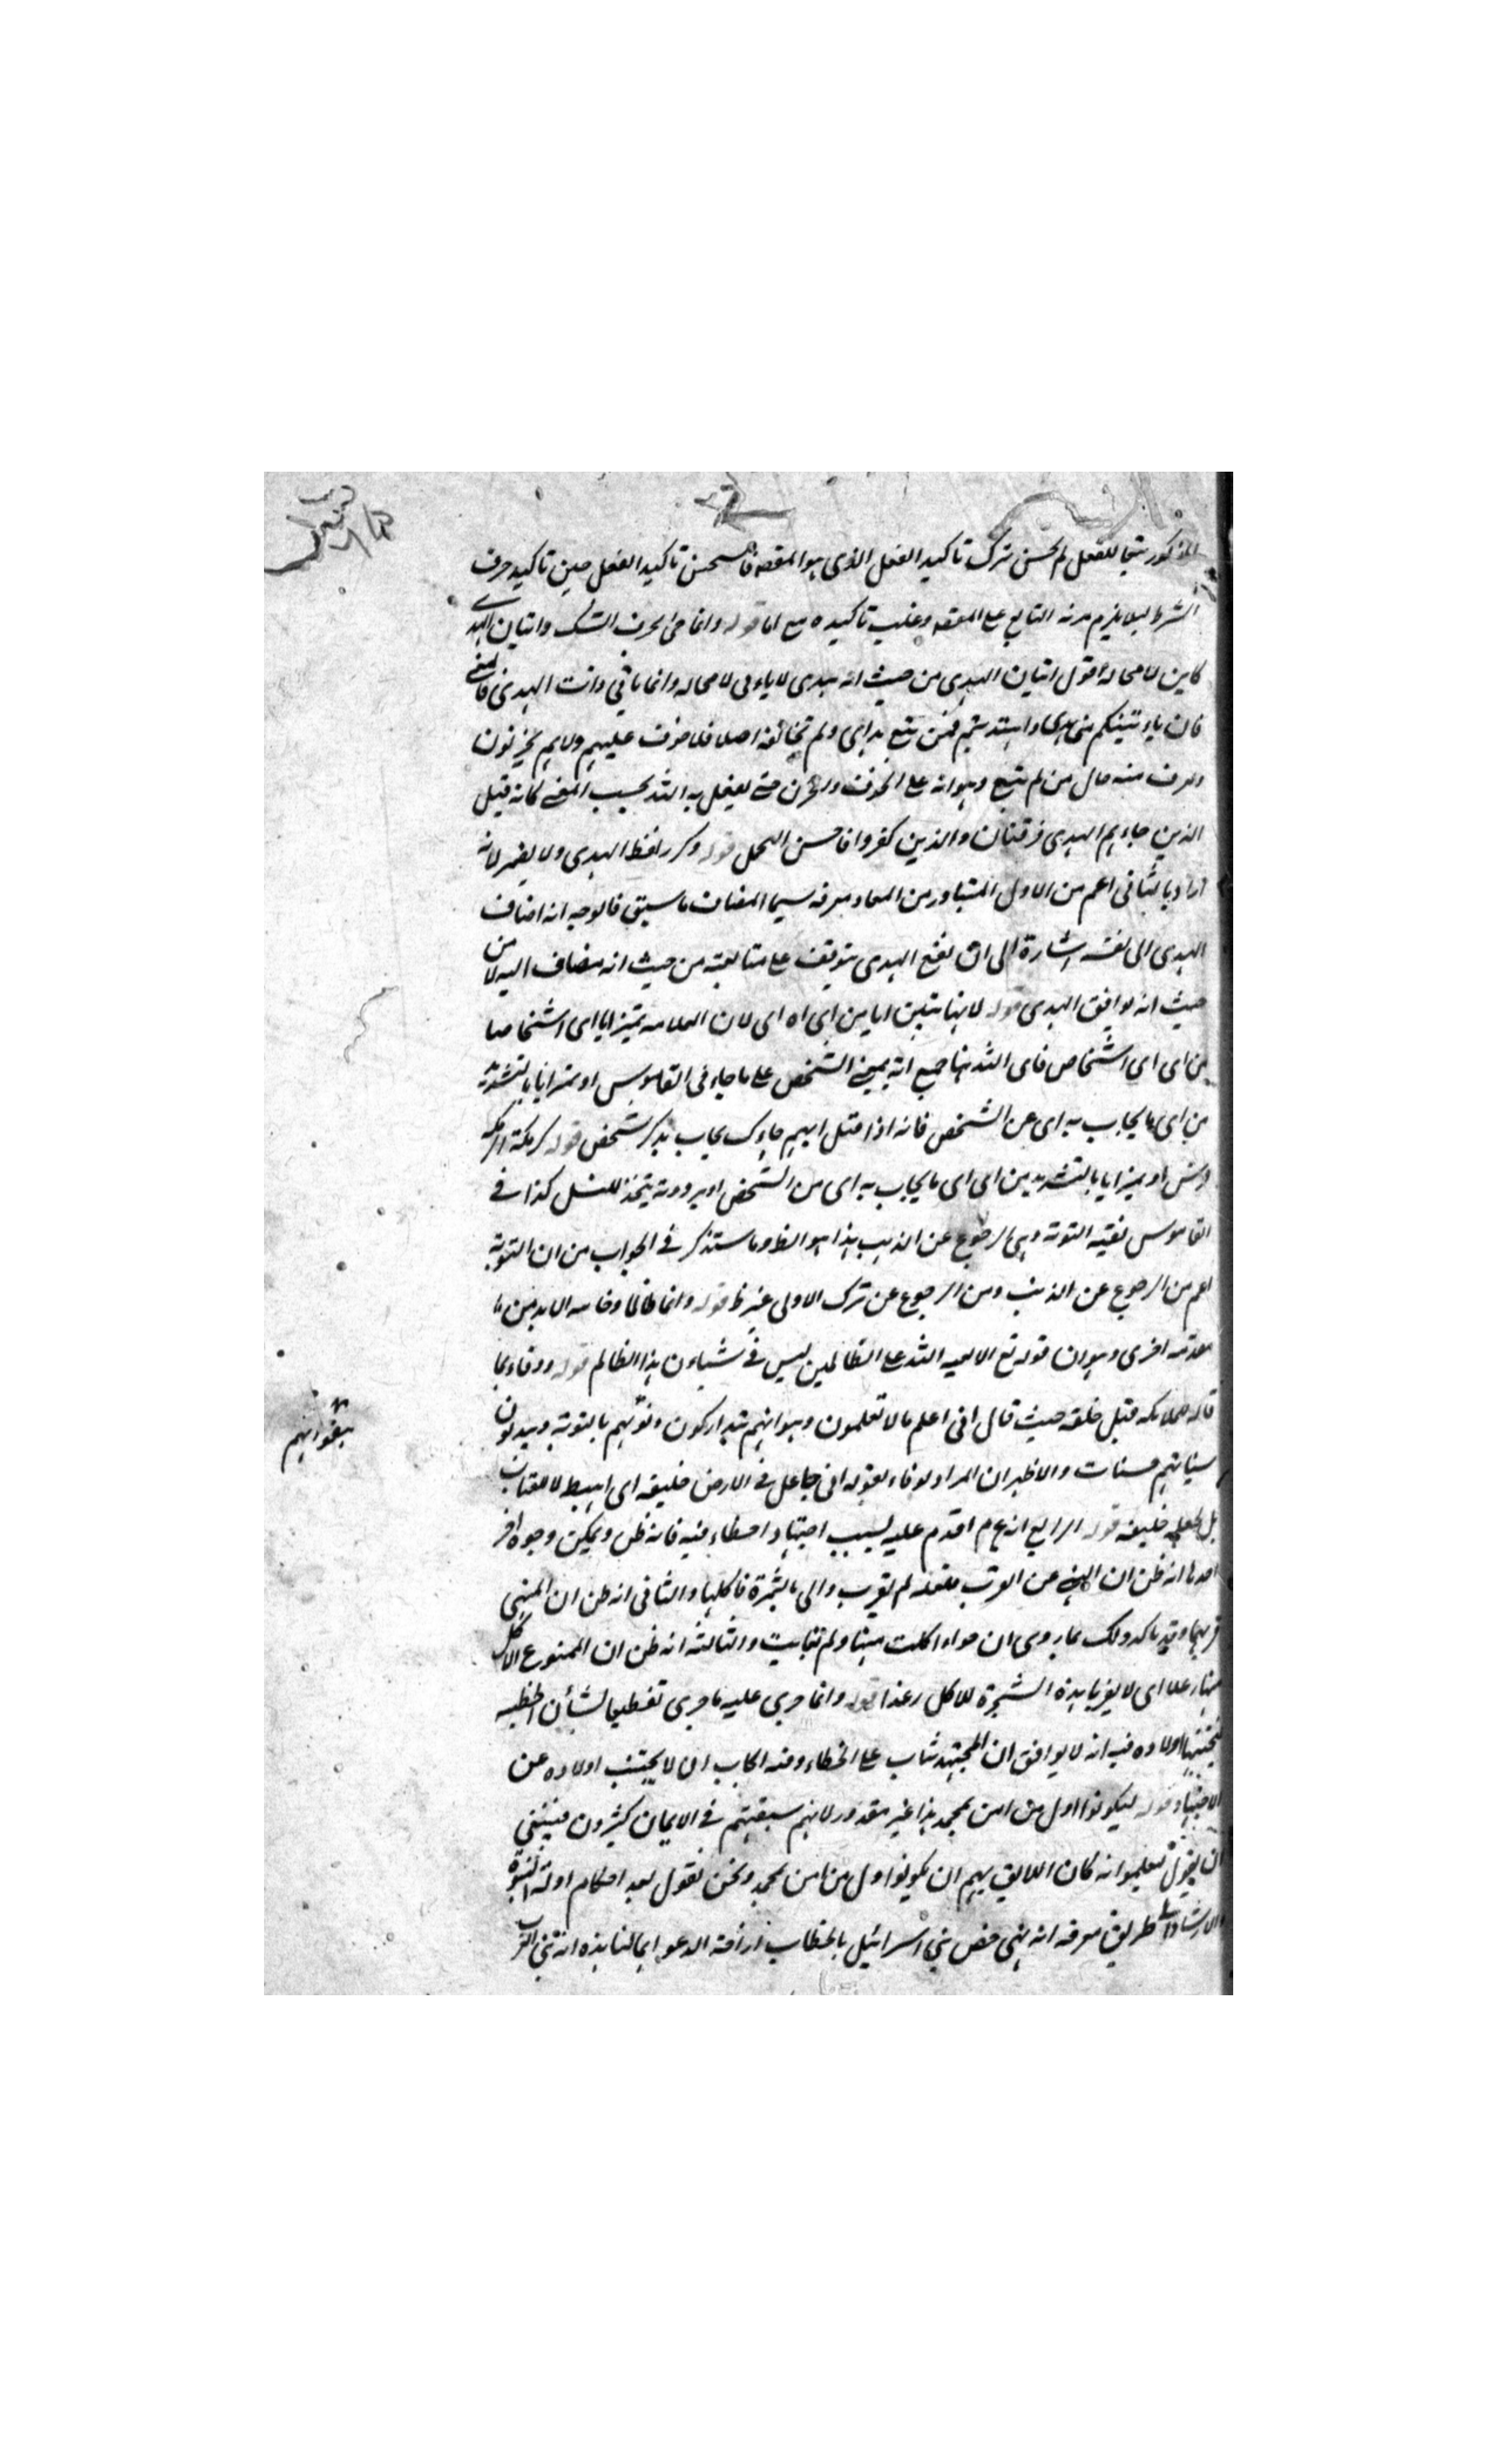 المذكور تبعا للفعل لم يحسن ترك تاكيد الفعل الذى هو المقصد فاستحسن تاكيد الفعل حين تاكيد حرف
الشرط ليلا يلزم مزية التابع على المقصد وغلب تاكيده مع اما قوله وانما جئ بحرف الشك واتيان الهدى
كاين لا محالة اقول اتيان الهدى من حيث انه هدى لا ياءتى لا محاله وانما ياتي ذات الهدى فالمعنى
فان ياءتينكم منى هدى واهتديتم فمن تبع هداى ولم يخالفه اصلا فلا خوف عليهم ولا هم يحزنون
وعرف منه حال من لم يتبع وهو انه على الخوف والحزن حتى يفعل به الله بحسب المعنى كانه قيل
الذين جاءهم الهدى فرقتان والذين كفروا فاحسن التحمل قوله وكرر لفظ الهدى ولا يضمر لانه
اراد بالثانى اعم من الاول المتبادر من المعاد معرفه سيما المضاف ما سبق فالوجه انه اضاف
الهدى الى نفسه اشارة الى ان نفع الهدى يتوقف على متابعته من حيث انه مضاف اليه لا من
حيث انه يوافق الهدى قوله لانها تبين ايا من اى اه اى لان العلامه تميز ايا اى اشخاصا
من اى اى اشخاص فاى الله نها جمع اية بمعنى الشخص على ما جاء فى القاموس او تميز ايا بالتشديد
من اى ما يجاب به اى عن الشخص فانه اذا قيل ايهم جاءك يجاب بذكر شخص قوله كرمكة الرمكه
فرس او تميز ايا بالتشديد من اى اى ما يجاب به اى من الشخص او برذونة يتخذ للنسل كذا فى
القاموس بقيه التوبة وهى الرجوع عن الذنب هذا هو الظ وما ستذكر فى الجواب من ان التوبة
اعم من الرجوع عن الذنب ومن الرجوع عن ترك الاولى غير ظ قوله وانما ظالما وخاسرا لابد من
مقدمه اخرى وهو ان قوله تع الا لعنه الله على الظالمين ليس فى شاءن هذا الظالم قوله ووفاء بما
قاله للملائكه قبل خلقه حيث قال انى اعلم ما لا تعلمون وهو انهم يتداركون ذنوبهم بالتوبة ويبدلون
سيئاتهم حسنات والاظهر ان المراد بوفاء بقوله انى جاعل فى الارض خليفه اى اهبط لا للعقاب
بل لجعله خليفة قوله الرابع انه ع م اقدم عليه بسبب اجتهاد اخطاء فيه فانه ظن ويمكن وجوه اخر
احدها انه ظن ان النهى عن القرب فلعله لم يقرب واتى بالثمرة فاكلها والثانى انه ظن ان المنهى
قربهما وقد ياكد ذلك بما روى ان حواء اكلت منها ولم تعاتب والثالثه انه ظن ان الممنوع الاكل
منها رغدا اى لا يقربا هذه الشجرة للاكل رغدا قوله وانما جرى عليه ما جرى تفظيعا لشأن الخطيه
ليجتنبها اولاده فيه انه لا يوافق ان المجتهد مثاب على الخطاء وفيه ايجاب ان لا يجتنب اولاده عن
الاجتهاد قوله ليكونوا اول من امن بمحمد هذا غير مقدور لانهم سبقهم فى الايمان كثيرون فينبغى
ان يقول ليعلموا انه كان اللايق بهم ان يكونوا اول من امن بمحمد ونحن نقول بعد احكام ادلة النبوة
والارشاد الى طريق معرفه انه نبى خص بنى اسرائيل بالخطاب
يبقوا انهم